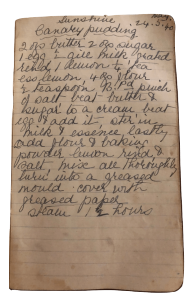 Sunshine 24.5.40
Canary pudding
2 ozs butter 2 ozs sugar
1 egg 2 gill milk grated
rind 1 lemon ½ tea
ess lemon, 4 ozs flour
½ teaspoon B. Pd pinch
of salt beat butter &
sugar to a cream beat
egg & add it stir in
milk & essence lastly
add flour & baking
powder lemon rind &
salt mix all thoroughly
turn into a greased
mould cover with
greased paper
steam 1½ hours